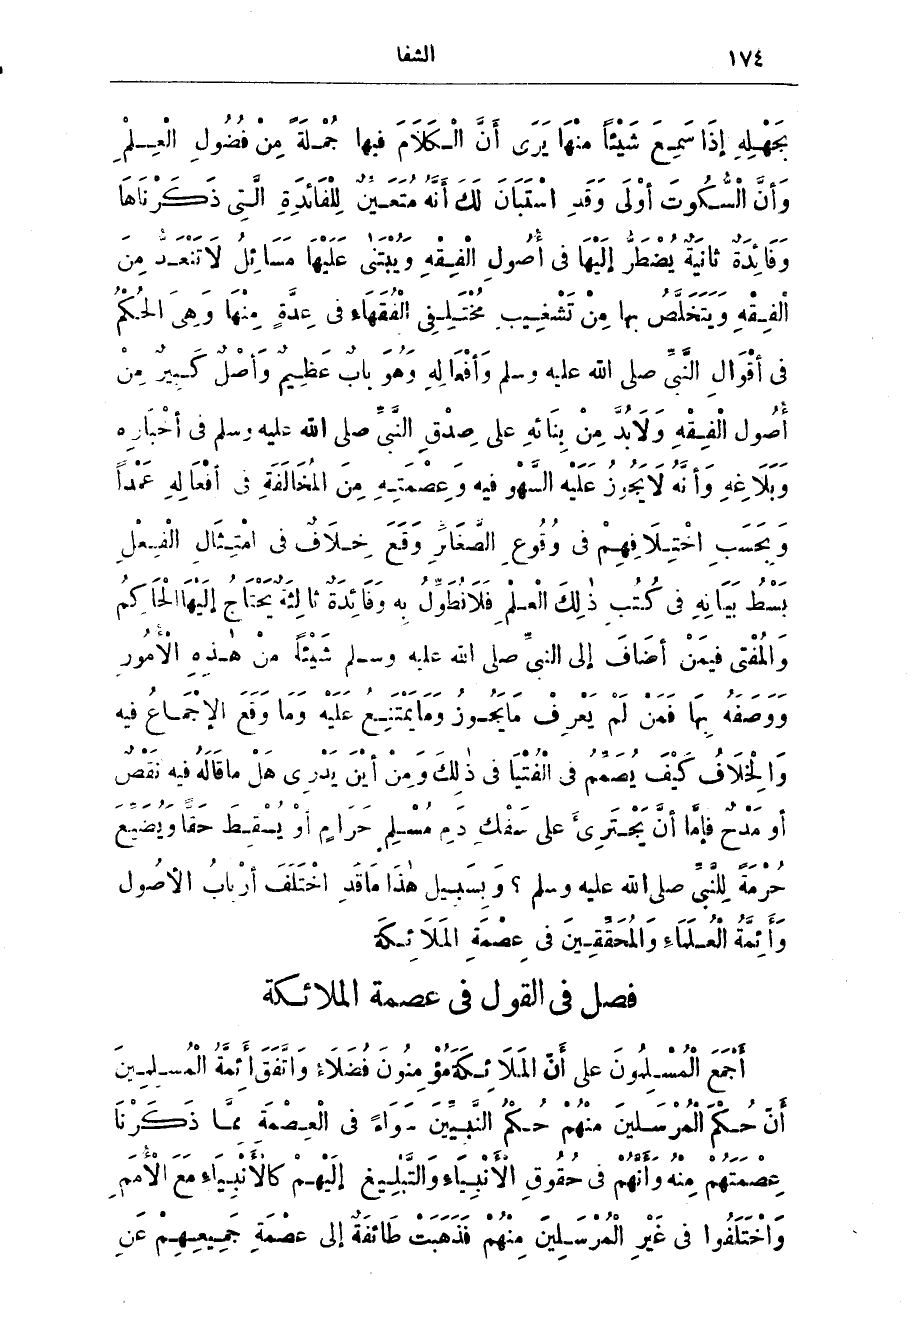 ١٧٤ الشفا
بِجَهْلِهِ إِذَا سَمِعَ شَيْئًا مِنْهَا يَرَى أَنَّ الْكَلَامَ فِيهَا جُمْلَةً مِنْ فُضُولِ الْعِلْمِ
وَأَنَّ السُّكُوتَ أَوْلَى وَقَدِ اسْتَبَانَ لَكَ أَنَّهُ مُتَعَيِّنٌ لِلْفَائِدَةِ الَّتِي ذَكَرْنَاهَا
وَفَائِدَةٌ ثَانِيَةٌ يُضْطَرُّ إِلَيْهَا فِي أُصُولِ الْفِقْهِ وَيُبْتَنَى عَلَيْهَا مَسَائِلُ لَا تَنْعَدُّ مِنَ
الْفِقْهِ وَيُتَخَلَّصُ بِهَا مِنْ تَشْغِيبِ مُخْتَلِفِي الْفُقَهَاءِ فِي عِدَّةٍ مِنْهَا وَهِيَ الْحُكْمُ
فِي أَقْوَالِ النَّبِيِّ صلى الله عليه وسلم وَأَفْعَالِهِ وَهُوَ بَابٌ عَظِيمٌ وَأَصْلٌ كَبِيرٌ مِنْ
أُصُولِ الْفِقْهِ وَلَا بُدَّ مِنْ بِنَائِهِ عَلَى صِدْقِ النَّبِيِّ صلى الله عليه وسلم فِي أَخْبَارِهِ
وَبَلَاغِهِ وَأَنَّهُ لَا يَجُوزُ عَلَيْهِ السَّهْوُ فِيهِ وَعِصْمَتِهِ مِنَ الْمُخَالَفَةِ فِي أَفْعَالِهِ عَمْدًا
وَبِحَسَبِ اخْتِلَافِهِمْ فِي وُقُوعِ الصَّغَائِرِ وَقَعَ خِلَافٌ فِي امْتِثَالِ الْفِعْلِ
بَسْطُ بَيَانِهِ فِي كُتُبِ ذٰلِكَ الْعِلْمِ فَلَا نُطَوِّلُ بِهِ وَفَائِدَةٌ ثَالِثَةٌ يَحْتَاجُ إِلَيْهَا الْحَاكِمُ
وَالْمُفْتِي فِيمَنْ أَضَافَ إِلَى النَّبِيِّ صلى الله عليه وسلم شَيْئًا مِنْ هٰذِهِ الْأُمُورِ
وَوَصَفَهُ بِهَا فَمَنْ لَمْ يَعْرِفْ مَا يَجُوزُ وَمَا يَمْتَنِعُ عَلَيْهِ وَمَا وَقَعَ الْإِجْمَاعُ فِيهِ
وَالْخِلَافُ كَيْفَ يُصَمِّمُ فِي الْفُتْيَا فِي ذٰلِكَ وَمِنْ أَيْنَ يَدْرِي هَلْ مَا قَالَهُ فِيهِ نَقْصٌ
أَوْ مَدْحٌ فَإِمَّا أَنْ يَجْتَرِئَ عَلَى سَفْكِ دَمِ مُسْلِمٍ حَرَامٍ أَوْ يُسْقِطَ حَقًّا وَيُضَيِّعَ
حُرْمَةً لِلنَّبِيِّ صلى الله عليه وسلم ؟ وَبِسَبِيلِ هٰذَا مَا قَدِ اخْتَلَفَ أَرْبَابُ الْأُصُولِ
وَأَئِمَّةُ الْعُلَمَاءِ وَالْمُحَقِّقِينَ فِي عِصْمَةِ الْمَلَائِكَةِ
فصل فى القول فى عصمة الملائكة
أَجْمَعَ الْمُسْلِمُونَ عَلَى أَنَّ الْمَلَائِكَةَ مُؤْمِنُونَ فُضَلَاءُ وَاتَّفَقَ أَئِمَّةُ الْمُسْلِمِينَ
أَنَّ حُكْمَ الْمُرْسَلِينَ مِنْهُمْ حُكْمُ النَّبِيِّينَ سَوَاءٌ فِي الْعِصْمَةِ مِمَّا ذَكَرْنَا
عِصْمَتَهُمْ مِنْهُ وَأَنَّهُمْ فِي حُقُوقِ الْأَنْبِيَاءِ وَالتَّبْلِيغِ إِلَيْهِمْ كَالْأَنْبِيَاءِ مَعَ الْأُمَمِ
وَاخْتَلَفُوا فِي غَيْرِ الْمُرْسَلِينَ مِنْهُمْ فَذَهَبَتْ طَائِفَةٌ إِلَى عِصْمَةِ جَمِيعِهِمْ عَنِ